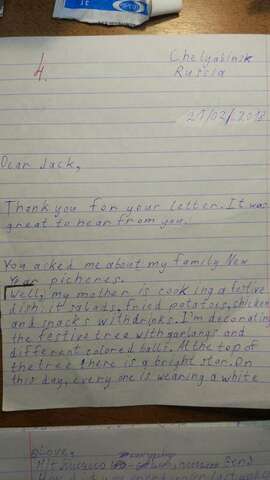 4.
Chelyabinsk
Russia
21/02/2018
Dear Jack,
Thank you for your letter. It was
great to hear from you.
You asked me about my family New
Year pictures.
Well, my mother is cooking a festive
dish: it salads, fried potatoes, chicken
and snacks with drinks. I'm decorating
the festive tree with garlangs and
different colored balls. At the top of
the tree there is a bright star. On
this day, every one is wearing a white
Love,